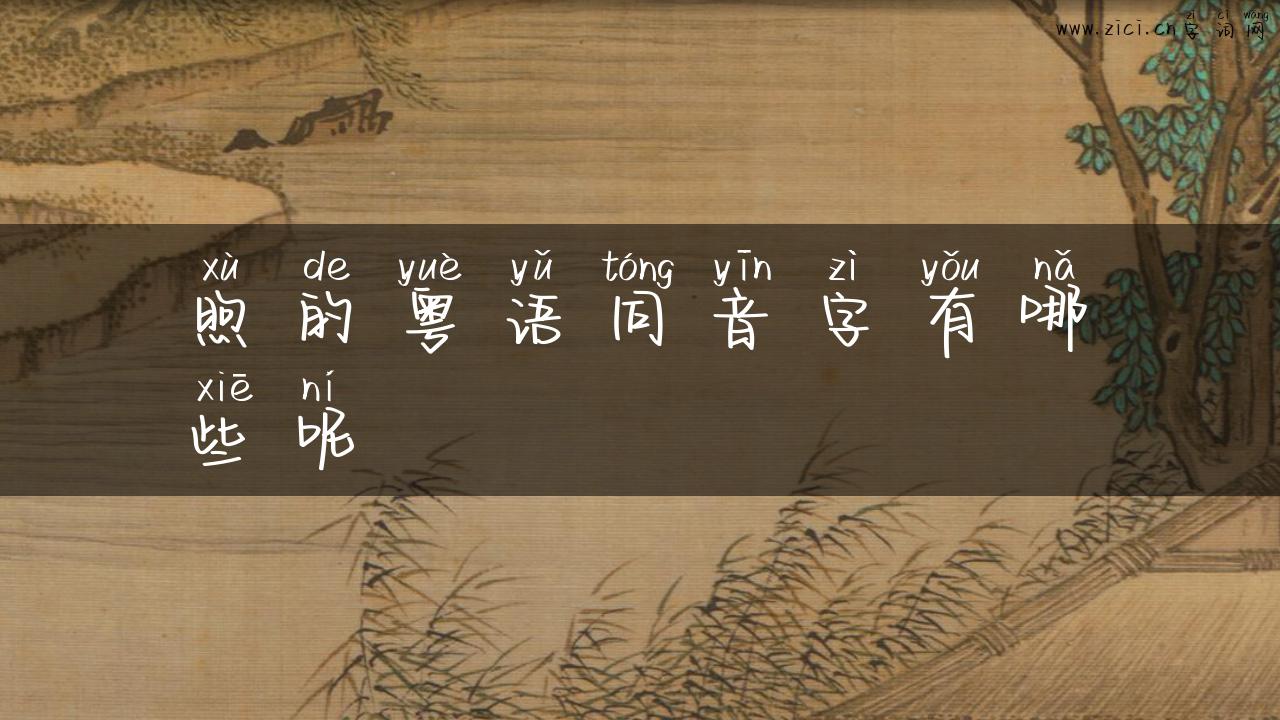 zì cí wǎng
www.zici.cn字词网
xù de yuè yǔ tóng yīn zì yǒu nǎ
煦的粤语同音字有哪
xiē ní
些呢